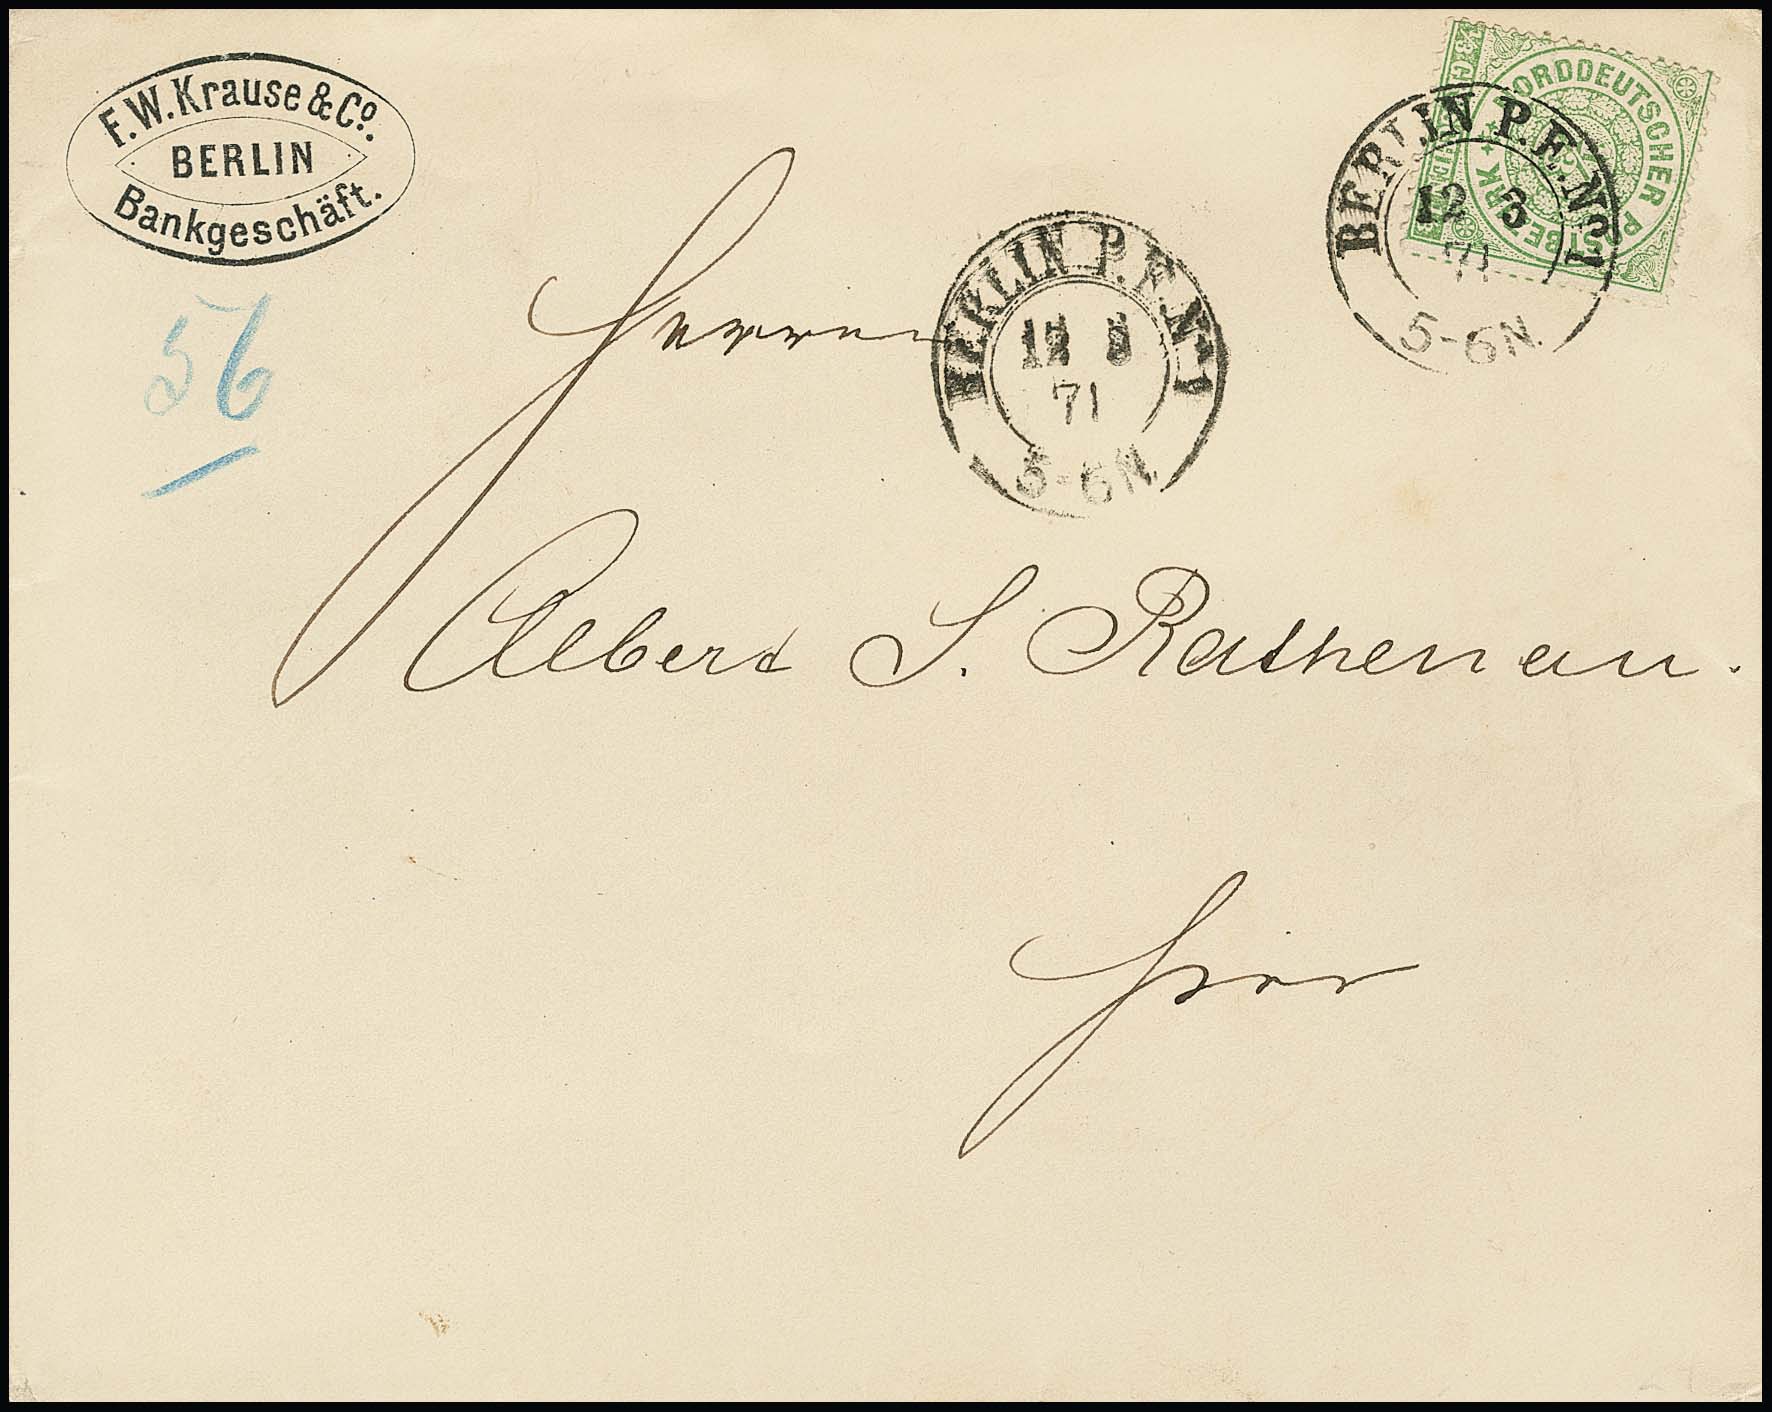 F.W. Krause & Co.
BERLIN
Bankgeschäft.
NORDDEUTSCHER POSTBEZIRK
BERLIN P.E. No 1
12 3
71
5-6N.
BERLIN P.E. No 1
12 3
71
5-6N.
56
Herren
Albert S. Rathenau.
Hier